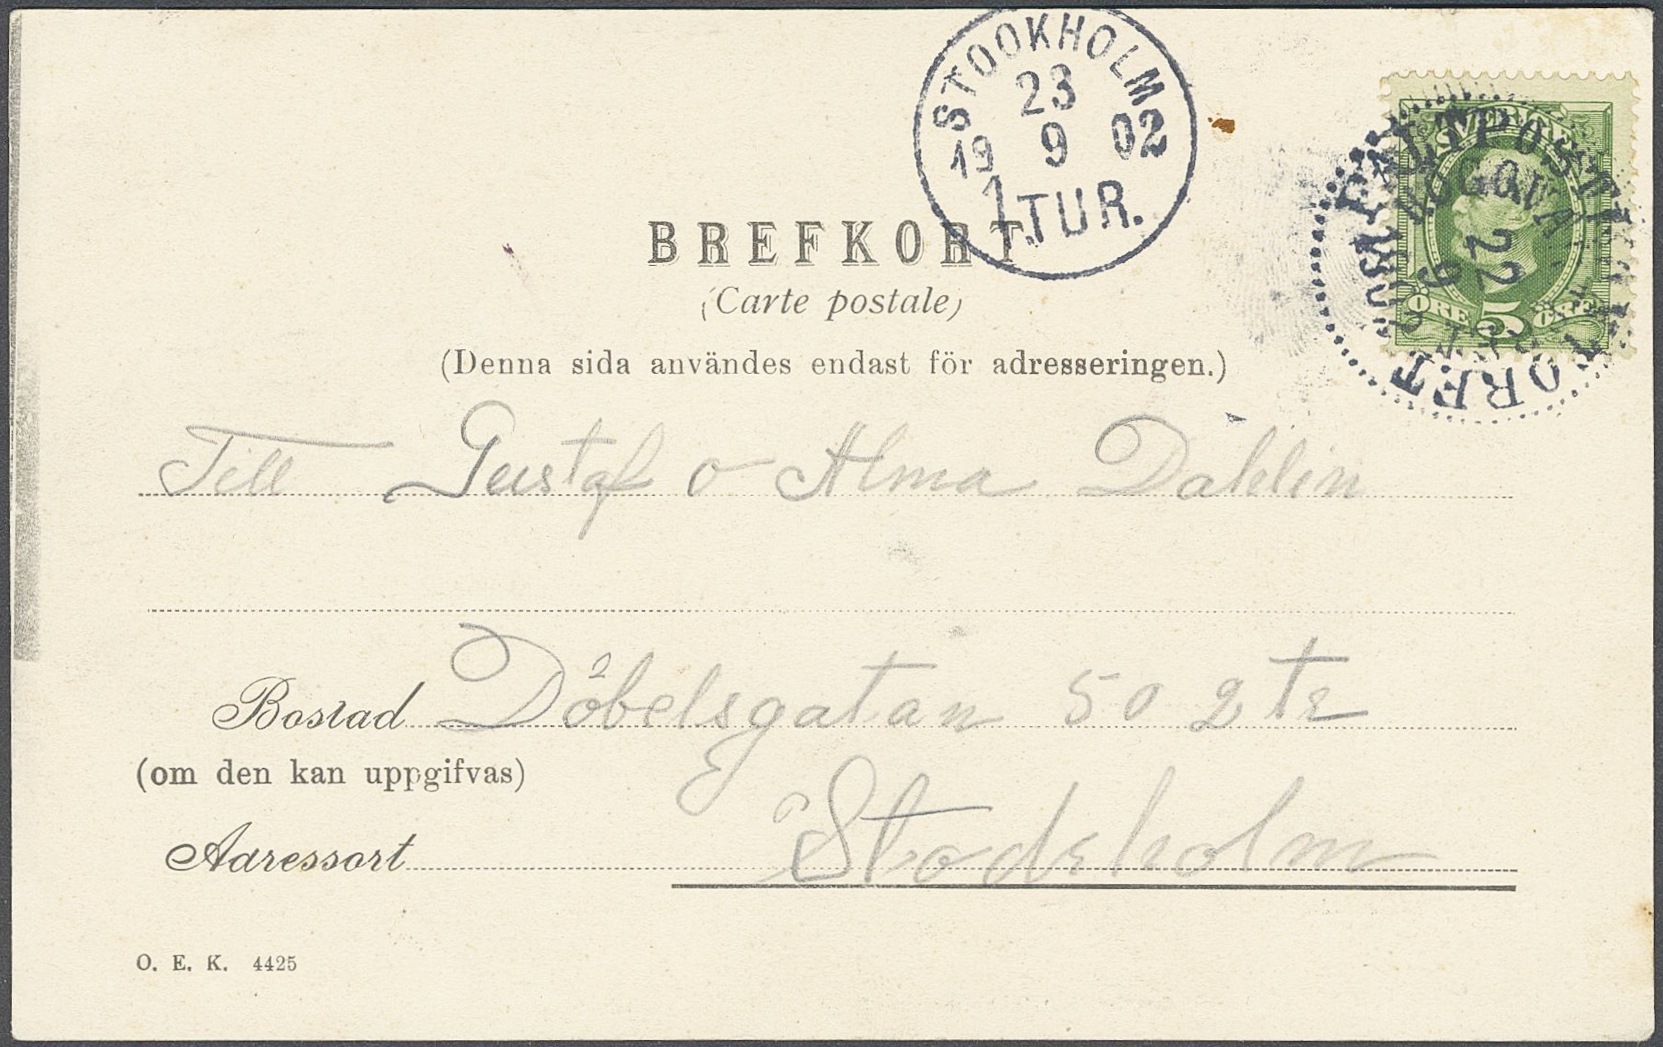 STOCKHOLM
23
19 9 02
1 TUR.
SVERIGE
FÄLTPOST
22
9
ÖRE 5 ÖRE
BREFKORT
(Carte postale)
(Denna sida användes endast för adresseringen.)
Till Gustaf o Alma Dahlin
Bostad Döbelsgatan 50 2 tr
(om den kan uppgifvas)
Adressort Stockholm
O. E. K. 4425